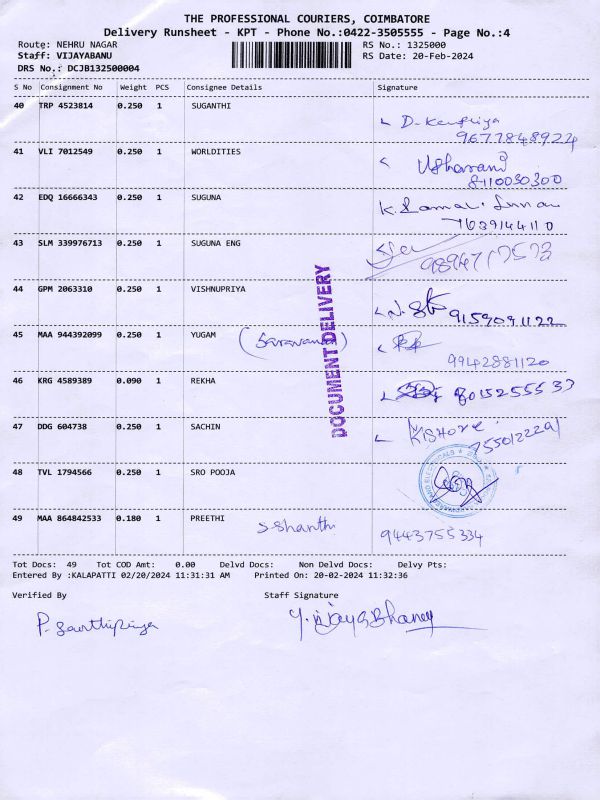 THE PROFESSIONAL COURIERS, COIMBATORE
Delivery Runsheet - KPT - Phone No.:0422-3505555 - Page No.:4
Route: NEHRU NAGAR RS No.: 1325000
Staff: VIJAYABANU RS Date: 20-Feb-2024
DRS No.: DCJB132500004
S No Consignment No Weight PCS Consignee Details Signature
40 TRP 4523814 0.250 1 SUGANTHI
9677848924
41 VLI 7012549 0.250 1 WORLDITIES
8110030300
42 EDQ 16666343 0.250 1 SUGUNA
7639144110
43 SLM 339976713 0.250 1 SUGUNA ENG
44 GPM 2063310 0.250 1 VISHNUPRIYA
9159091122
45 MAA 944392099 0.250 1 YUGAM
9942881120
46 KRG 4589389 0.090 1 REKHA
47 DDG 604738 0.250 1 SACHIN Kishore
48 TVL 1794566 0.250 1 SRO POOJA
49 MAA 864842533 0.180 1 PREETHI S. Shanthi
9443755334
DOCUMENT DELIVERY
Tot Docs: 49 Tot COD Amt: 0.00 Delvd Docs: Non Delvd Docs: Delvy Pts:
Entered By :KALAPATTI 02/20/2024 11:31:31 AM Printed On: 20-02-2024 11:32:36
Verified By Staff Signature